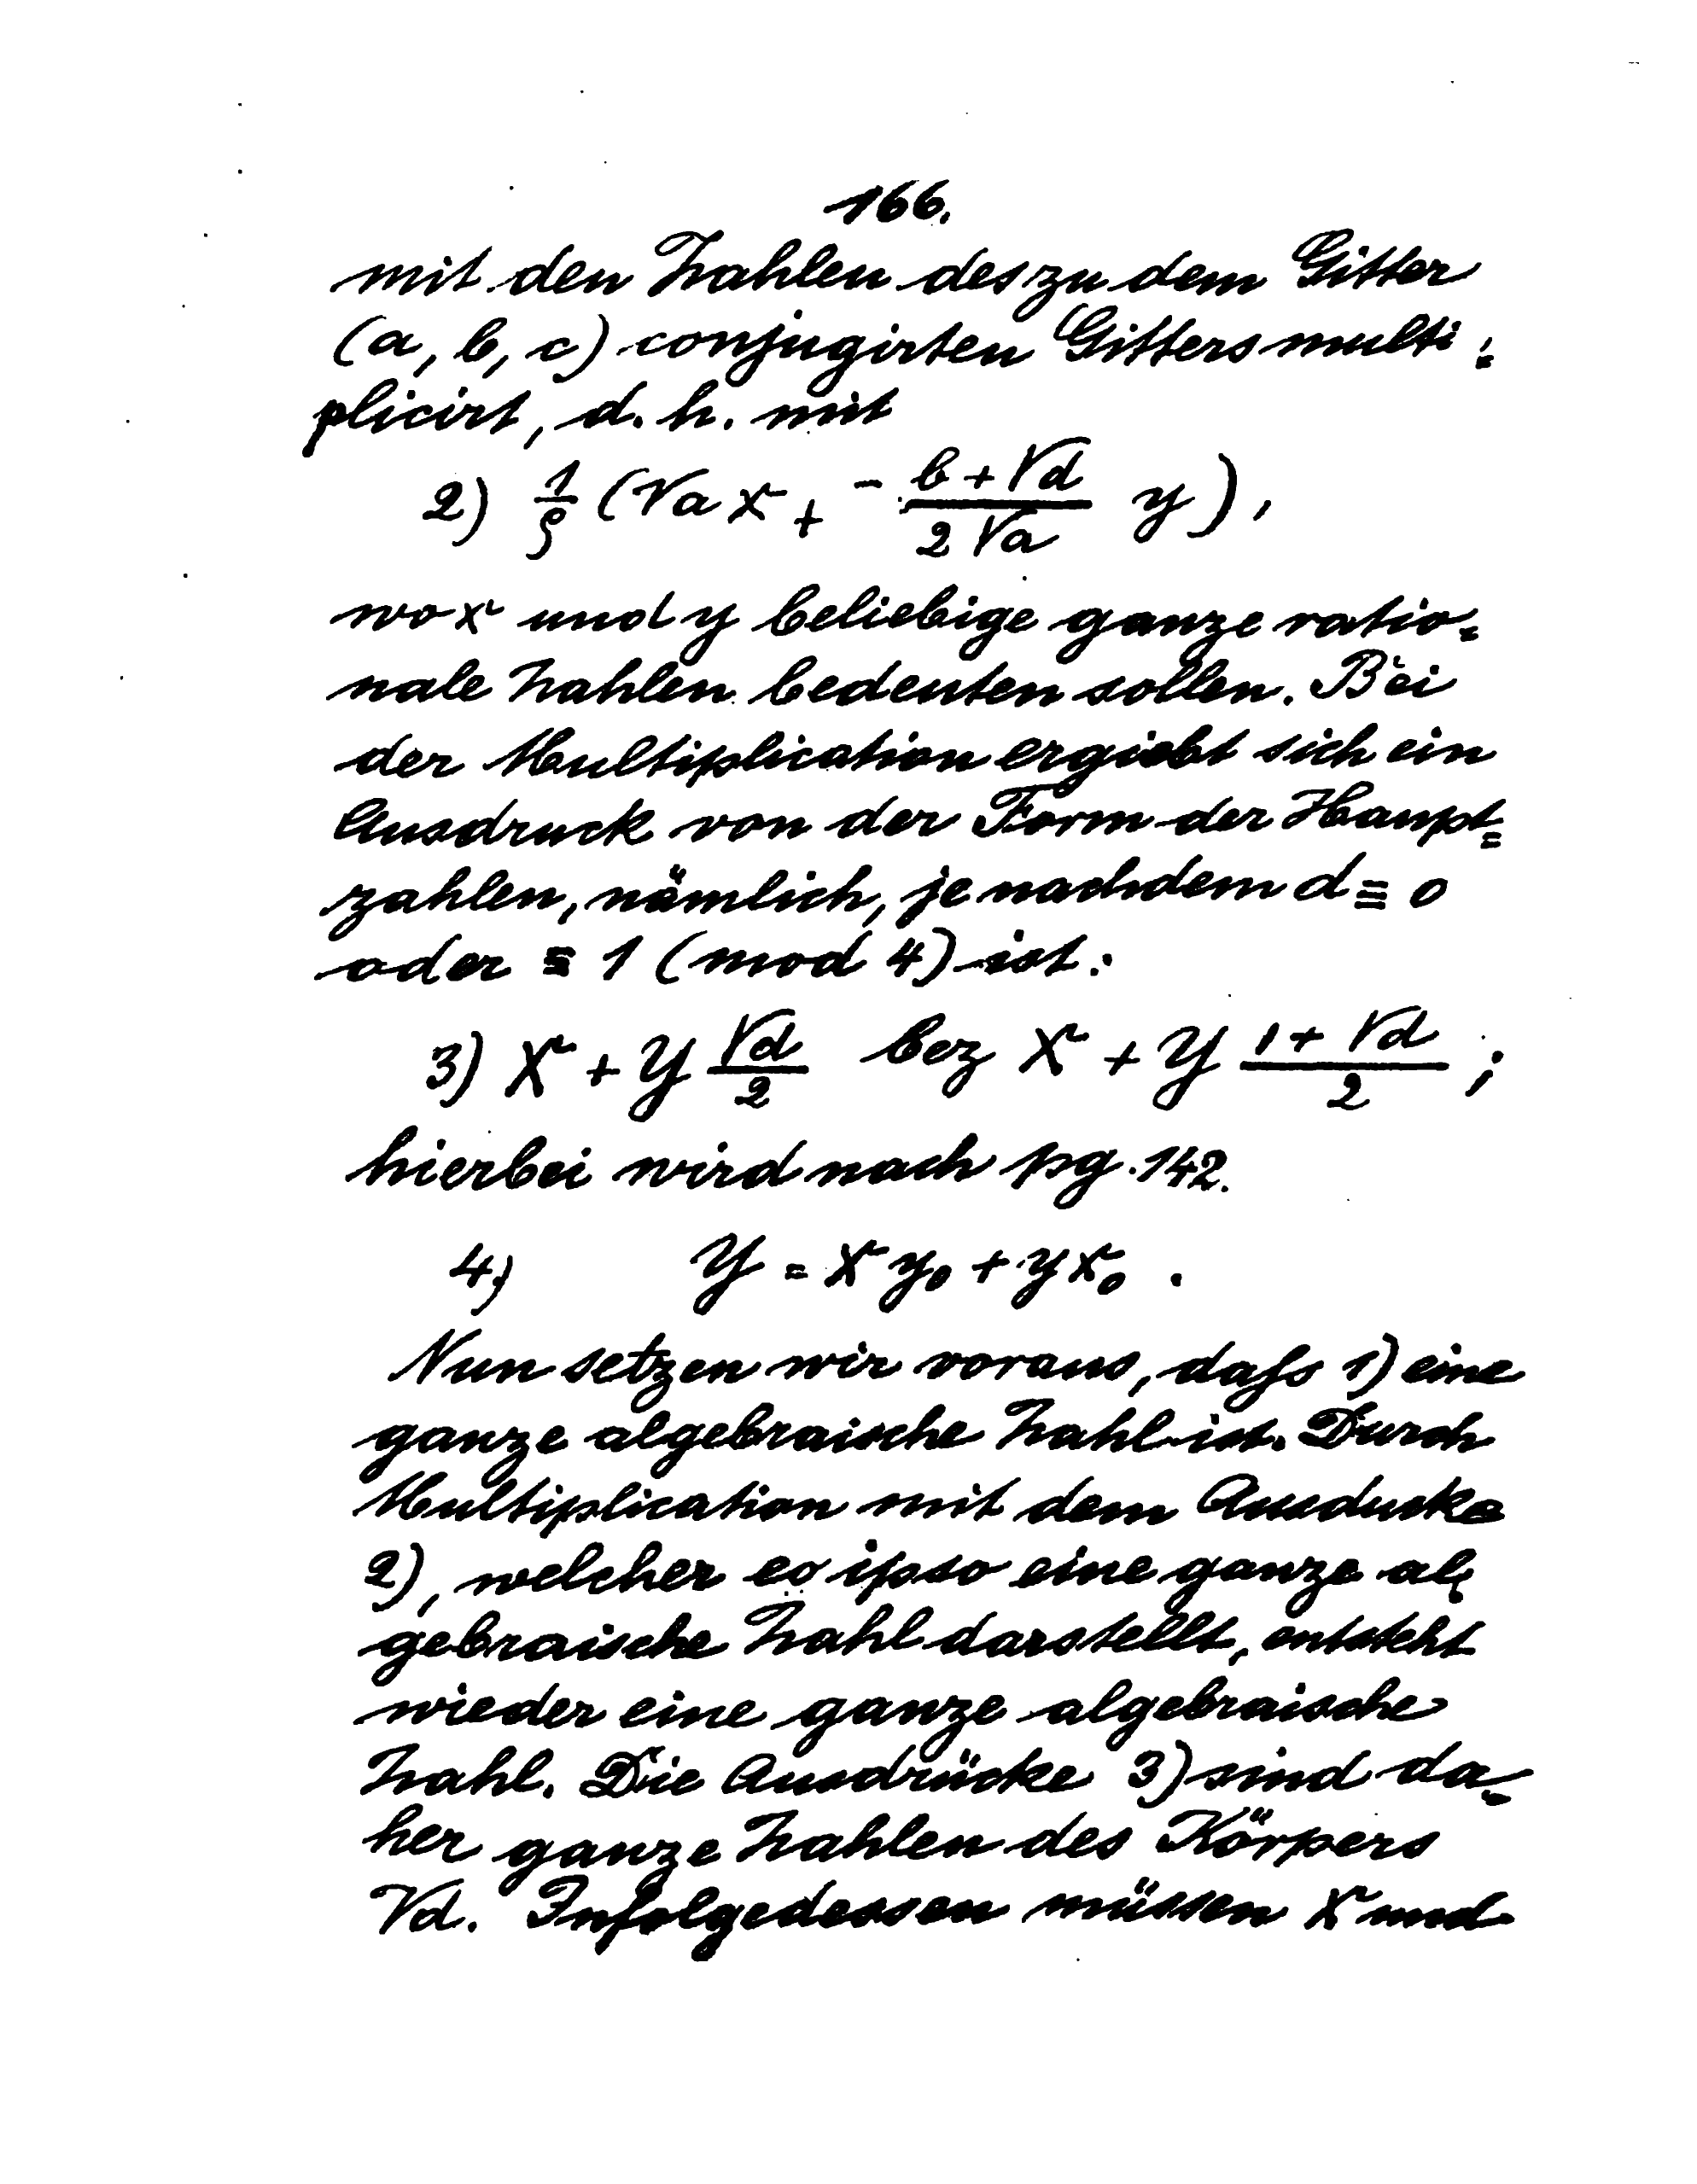 166.
mit den Zahlen des zu dem Gitter
(a, b, c) conjugirten Gitters multi=
plicirt, d. h. mit
2) 1/ρ (√a x + -b+√d/2√a y),
wo x und y beliebige ganze ratio=
nale Zahlen bedeuten sollen. Bei
der Multiplication ergiebt sich ein
Ausdruck von der Form der Haupt=
zahlen, nämlich, je nachdem d ≡ 0
oder ≡ 1 (mod 4) ist:
3) X + Y √d/2 bez X + Y 1+√d/2 ;
hierbei wird nach pg. 142.
4) Y = x y₀ + y x₀ .
Nun setzen wir voraus, dafs 1) eine
ganze algebraische Zahl ist. Durch
Multiplication mit dem Ausducke
2), welcher eo ipso eine ganze al=
gebraische Zahl darstellt, entsteht
wieder eine ganze algebraische
Zahl. Die Ausdrücke 3) sind da=
her ganze Zahlen des Körpers
√d. Infolgedessen müssen X und